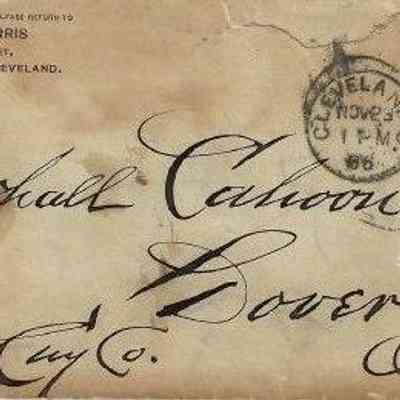 PLEASE RETURN TO
RRIS
ET,
LEVELAND.
CLEVELAN
NOV 23
1 PM
86
hall Calhoon
Dover
Cuy Co.